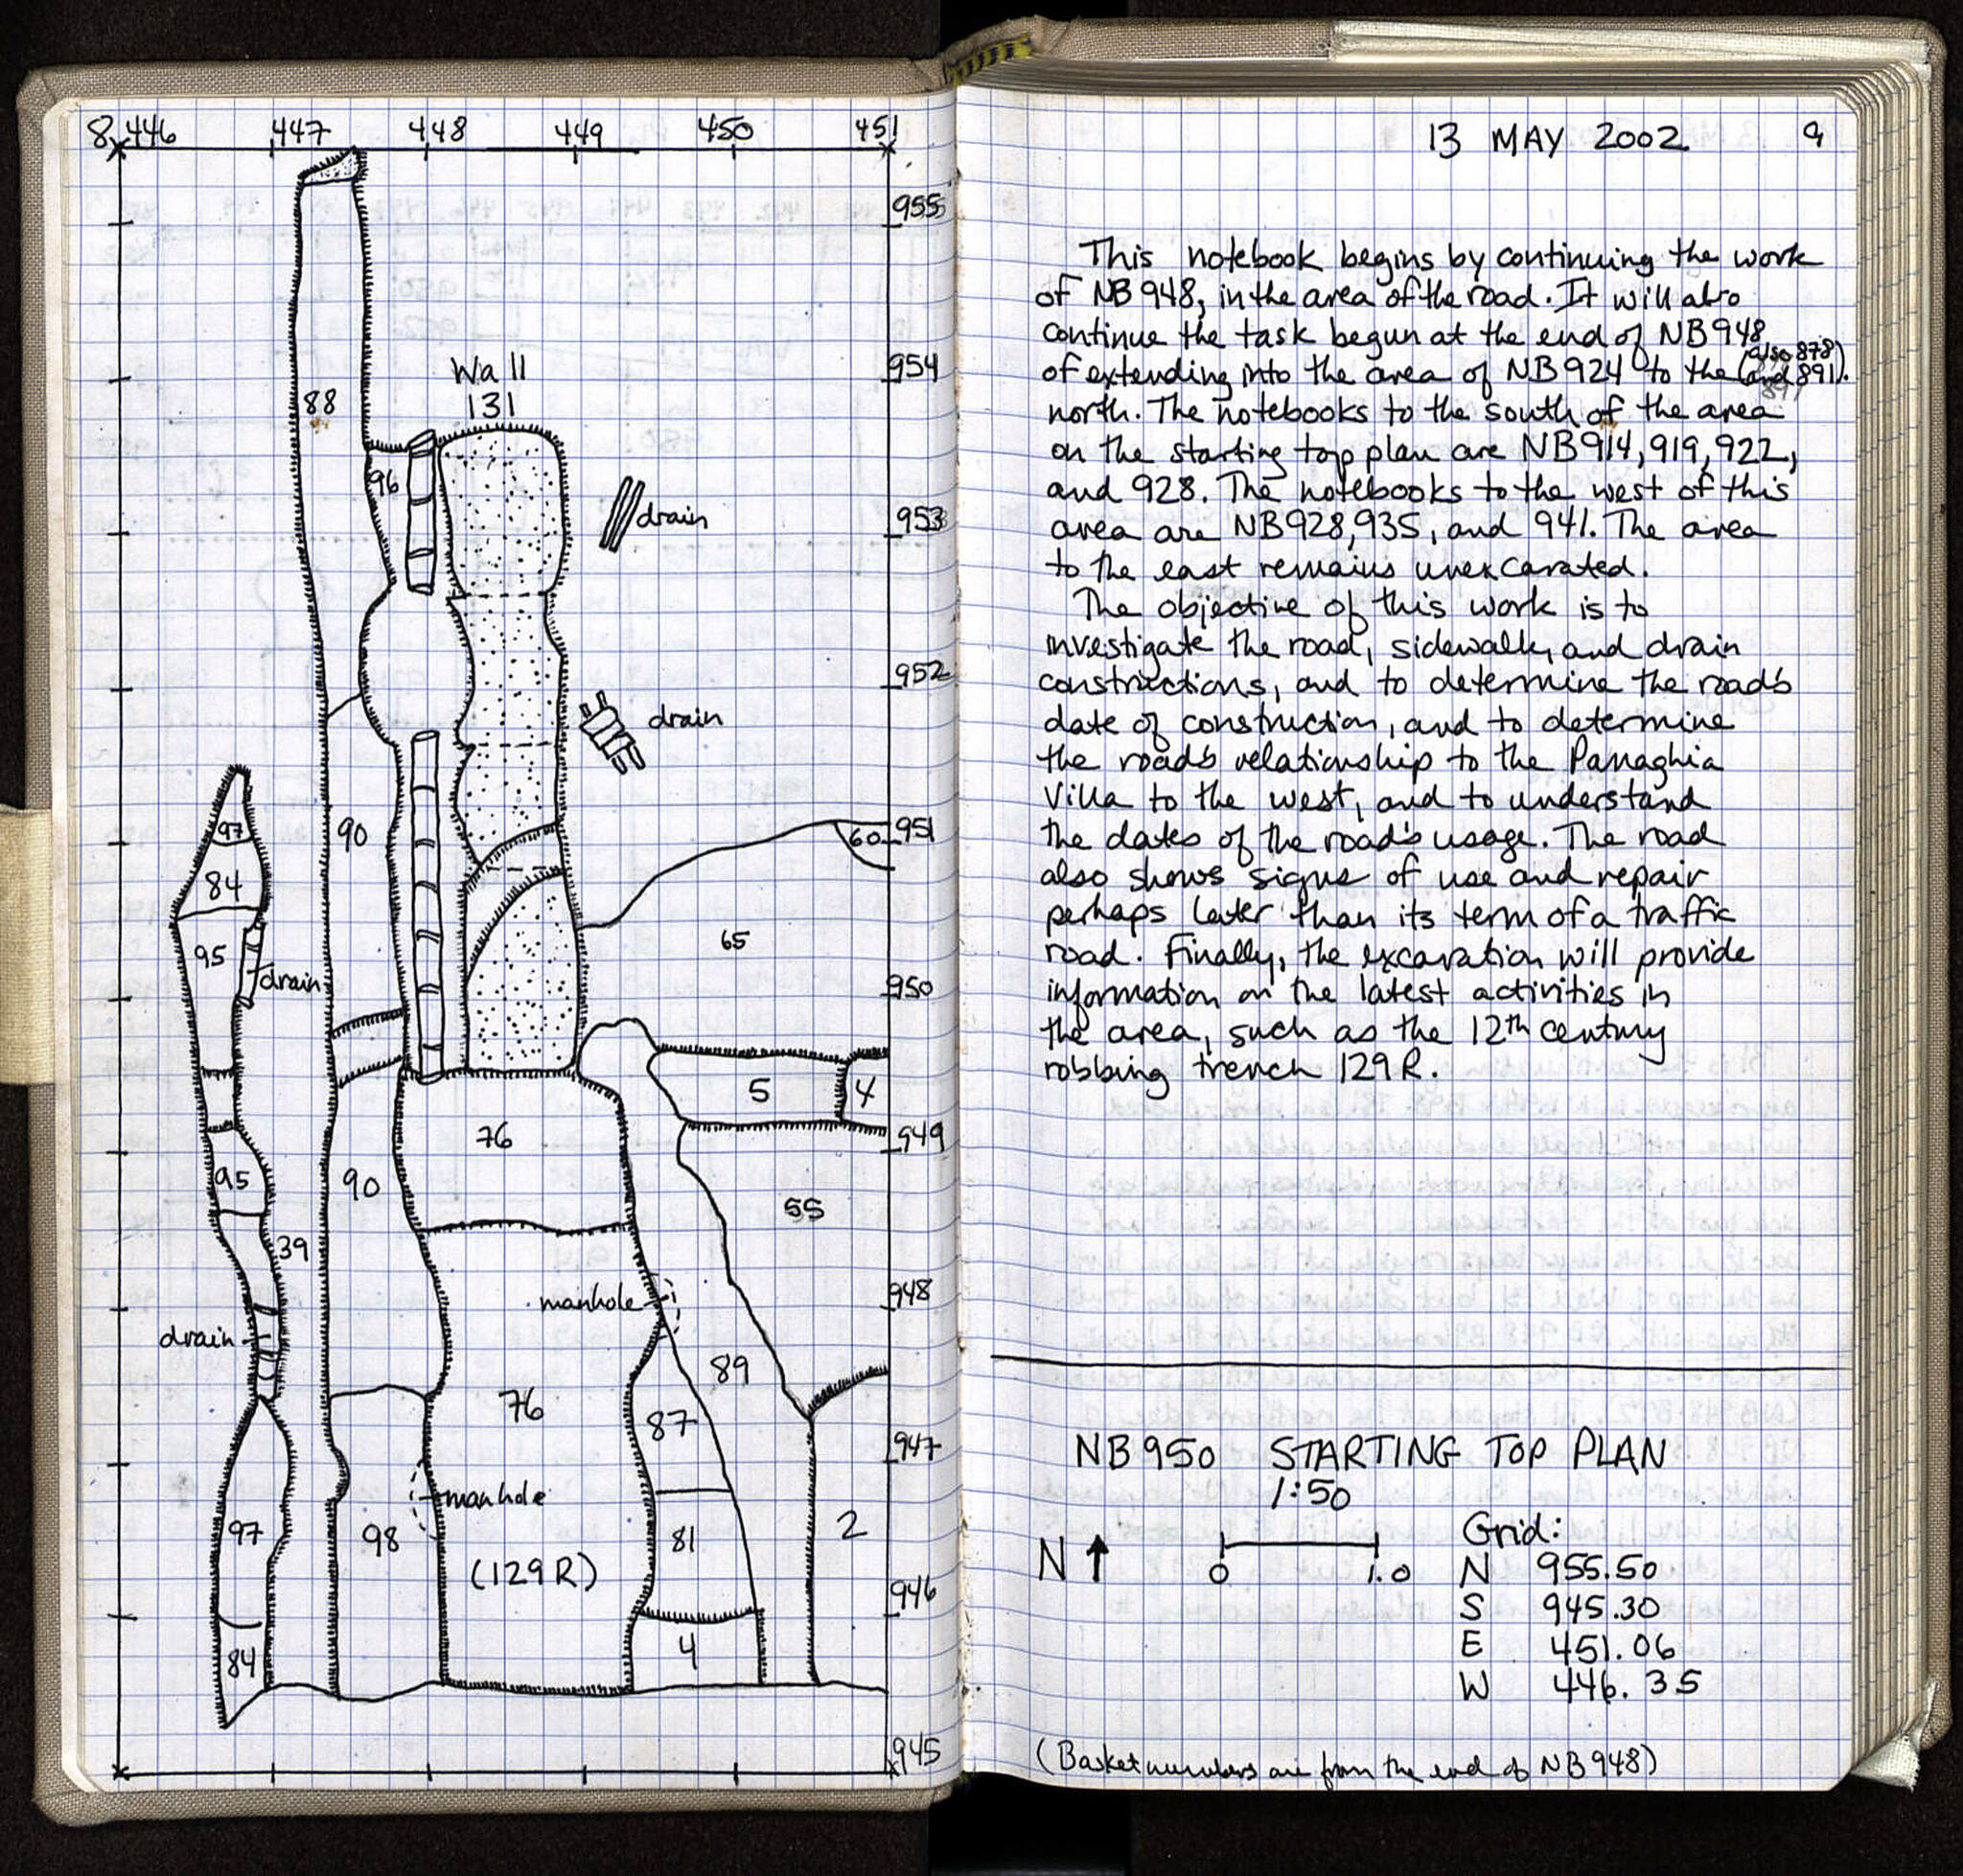 8 446 447 448 449 450 451
955
954
Wall
131
88
96
drain
953
952
drain
97
90
951
60
84
65
95
drain
950
5 4
76
949
95
90
55
39
948
manhole
drain
89
76
87
947
manhole
97
98
81
2
(129R)
946
4
84
945
13 MAY 2002 9
This notebook begins by continuing the work
of NB 948, in the area of the road. It will also
continue the task begun at the end of NB 948
of extending into the area of NB 924 to the (also 878 and 891).
north. The notebooks to the south of the area
on the starting top plan are NB 914, 919, 922,
and 928. The notebooks to the west of this
area are NB 928, 935, and 941. The area
to the east remains unexcavated.
The objective of this work is to
investigate the road, sidewalk, and drain
constructions, and to determine the road's
date of construction, and to determine
the road's relationship to the Panaghia
Villa to the west, and to understand
the dates of the road's usage. The road
also shows signs of use and repair
perhaps later than its term of a traffic
road. Finally, the excavation will provide
information on the latest activities in
the area, such as the 12th century
robbing trench 129R.
NB 950 STARTING TOP PLAN
1:50
N 0 1.0
Grid:
N 955.50
S 945.30
E 451.06
W 446.35
(Basket numbers are from the end of NB 948)